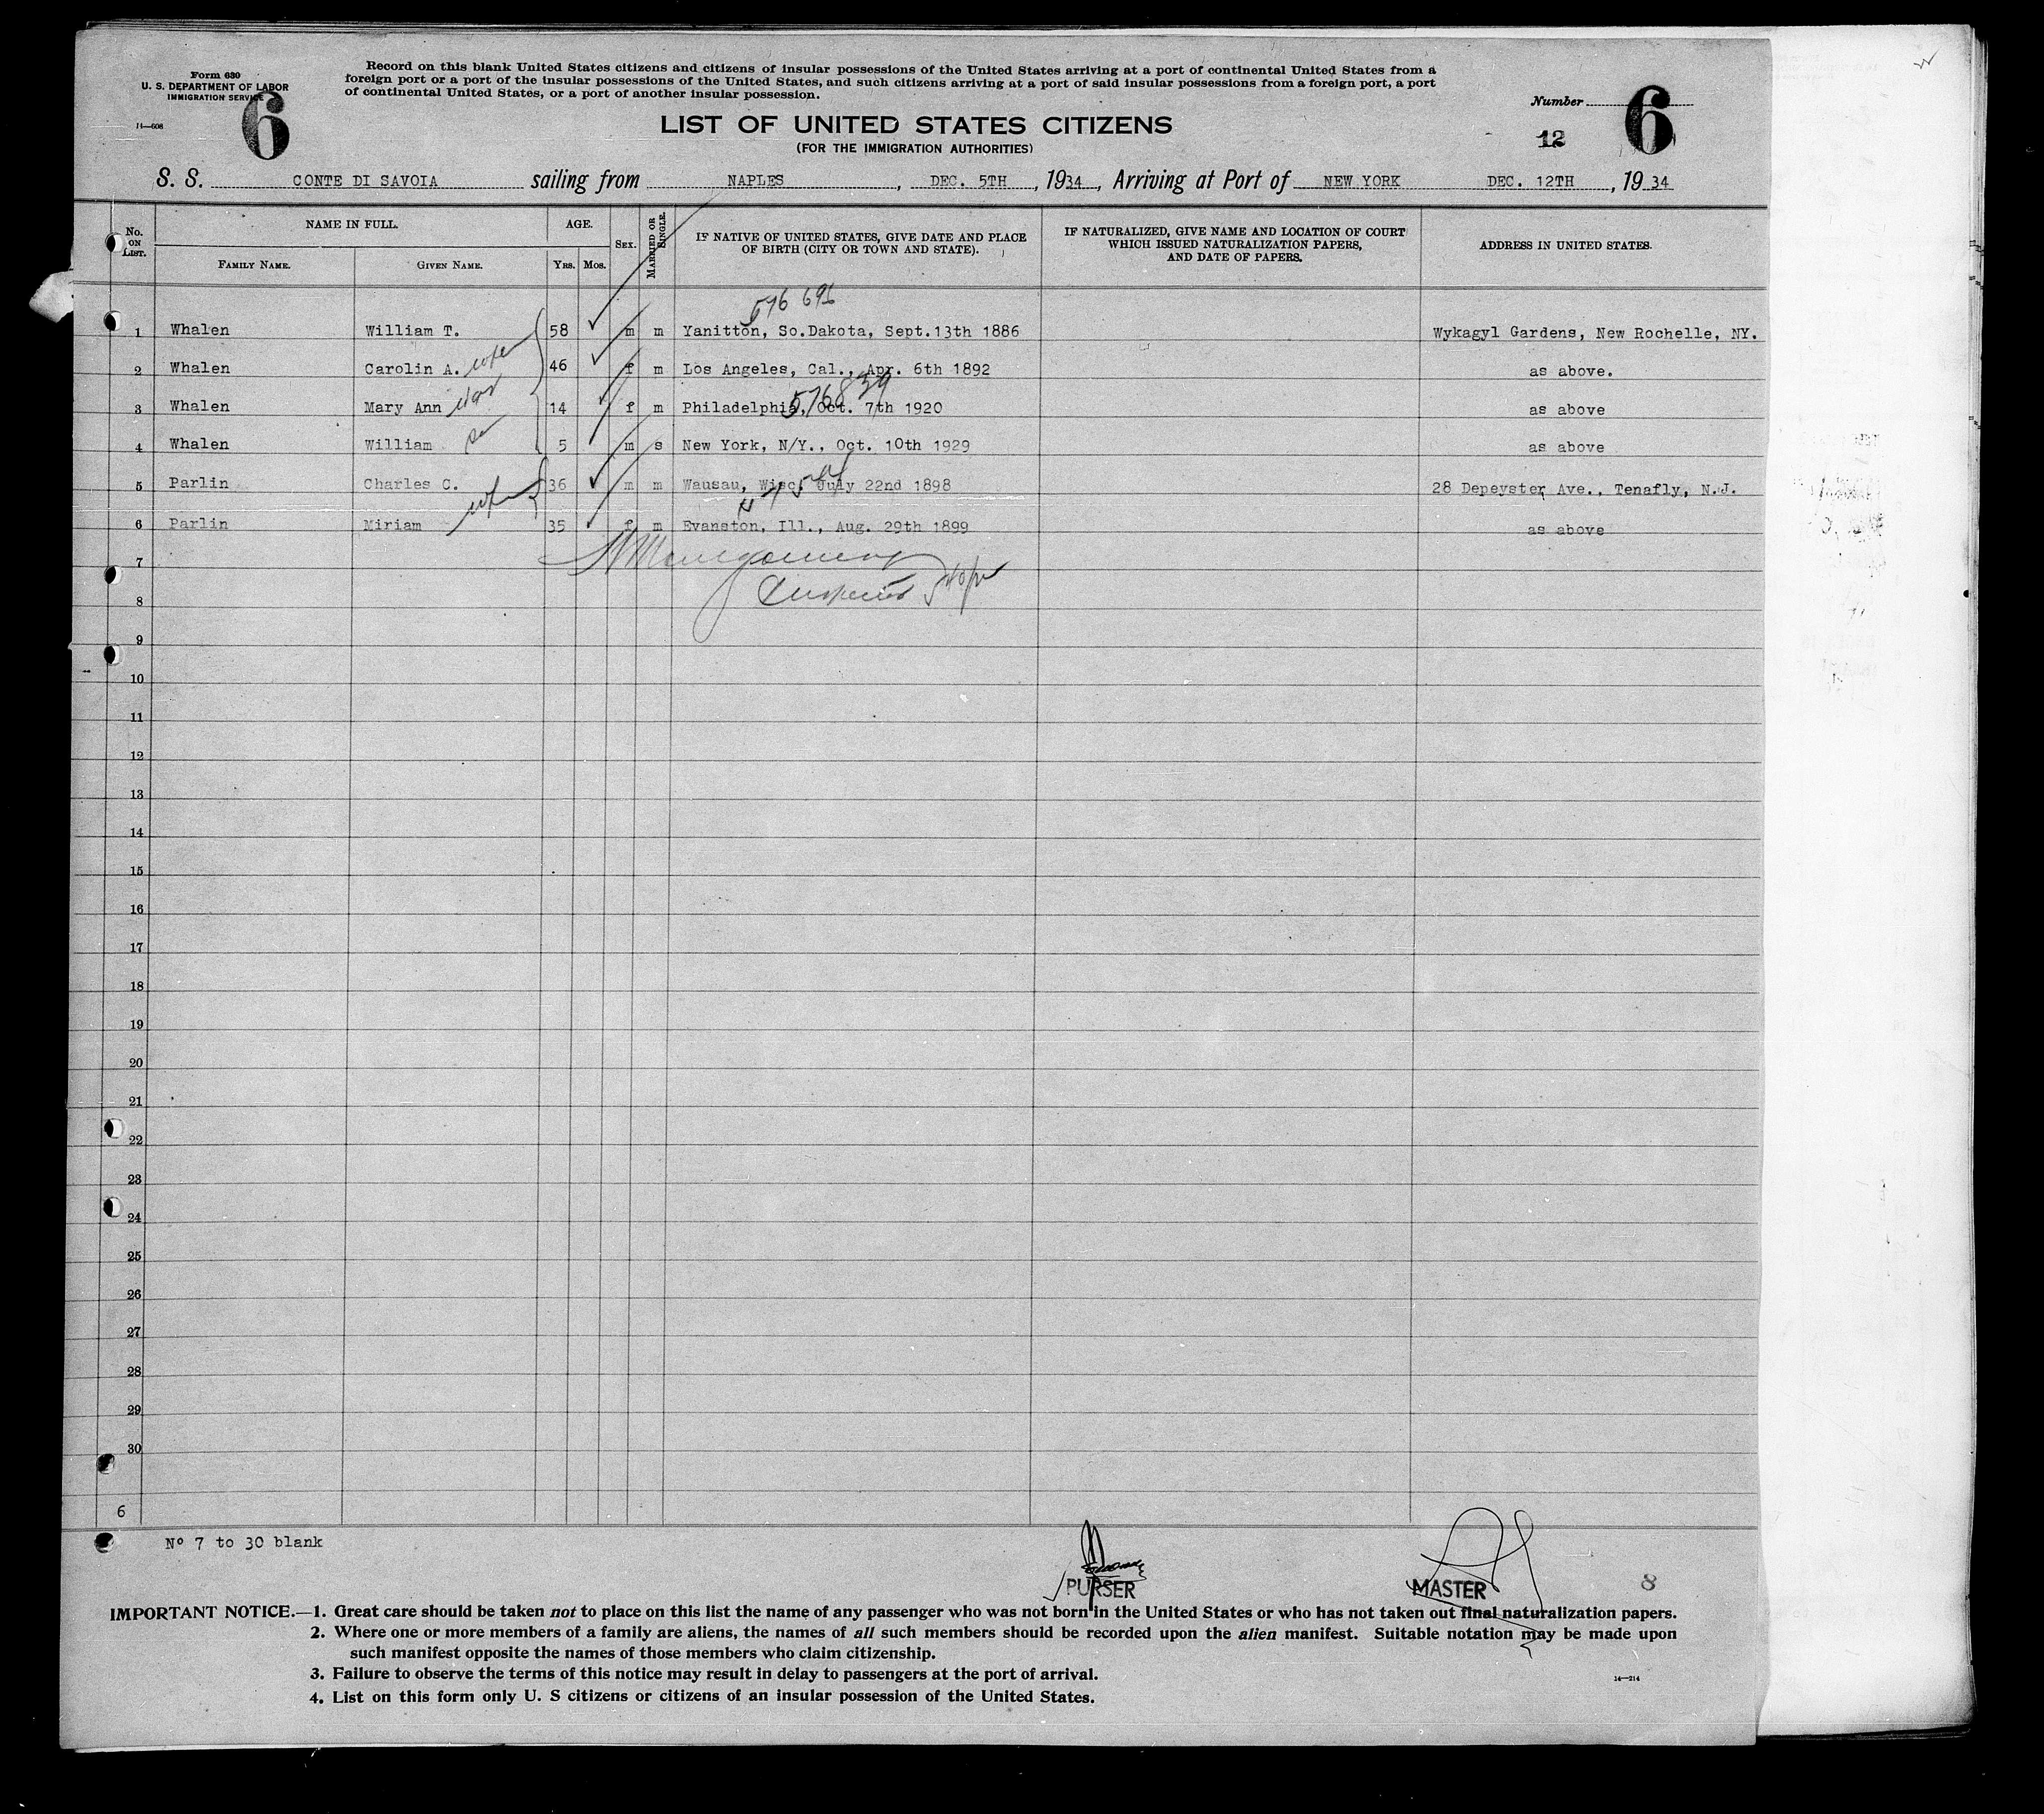 Form 630
U. S. DEPARTMENT OF LABOR
IMMIGRATION SERVICE
14—608
6
Record on this blank United States citizens and citizens of insular possessions of the United States arriving at a port of continental United States from a
foreign port or a port of the insular possessions of the United States, and such citizens arriving at a port of said insular possessions from a foreign port, a port
of continental United States, or a port of another insular possession.
LIST OF UNITED STATES CITIZENS
(FOR THE IMMIGRATION AUTHORITIES)
Number 6
12
S. S. CONTE DI SAVOIA sailing from NAPLES, DEC. 5TH, 1934, Arriving at Port of NEW YORK DEC. 12TH, 1934
No. ON LIST. NAME IN FULL. AGE. SEX. MARRIED OR SINGLE. IF NATIVE OF UNITED STATES, GIVE DATE AND PLACE OF BIRTH (CITY OR TOWN AND STATE). IF NATURALIZED, GIVE NAME AND LOCATION OF COURT WHICH ISSUED NATURALIZATION PAPERS, AND DATE OF PAPERS. ADDRESS IN UNITED STATES.
FAMILY NAME. GIVEN NAME. YRS. MOS.
576 696
1 Whalen William T. 58 m m Yanitton, So.Dakota, Sept.13th 1886 Wykagyl Gardens, New Rochelle, NY.
2 Whalen Carolin A. wife 46 f m Los Angeles, Cal., Apr. 6th 1892 as above.
576839
3 Whalen Mary Ann 14 f m Philadelphia, Oct. 7th 1920 as above
4 Whalen William 5 m s New York, N/Y., Oct. 10th 1929 as above
5 Parlin Charles C. 36 m m Wausau, Wisc. July 22nd 1898 28 Depeyster Ave., Tenafly, N.J.
6 Parlin Miriam wife 35 f m Evanston, Ill., Aug. 29th 1899 as above
7 Montgomery
8 Inspector
9
10
11
12
13
14
15
16
17
18
19
20
21
22
23
24
25
26
27
28
29
30
6
Nº 7 to 30 blank
PURSER
MASTER
8
IMPORTANT NOTICE.—1. Great care should be taken not to place on this list the name of any passenger who was not born in the United States or who has not taken out final naturalization papers.
2. Where one or more members of a family are aliens, the names of all such members should be recorded upon the alien manifest. Suitable notation may be made upon
such manifest opposite the names of those members who claim citizenship.
3. Failure to observe the terms of this notice may result in delay to passengers at the port of arrival.
4. List on this form only U. S citizens or citizens of an insular possession of the United States.
14—214